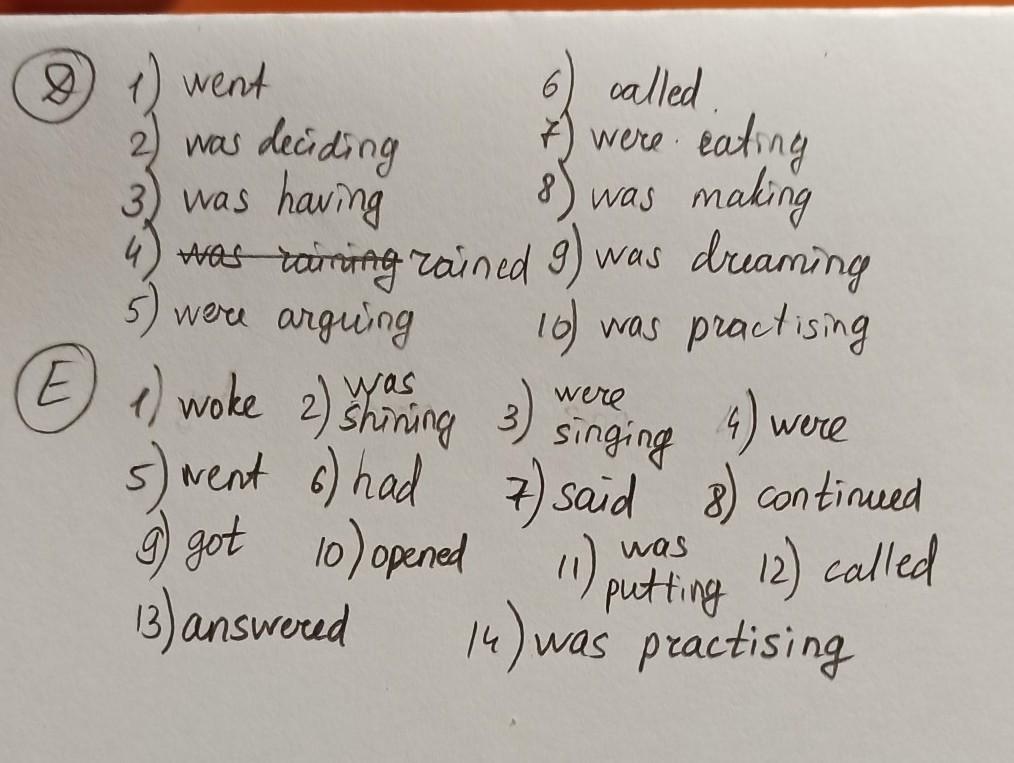 D 1) went 6) called.
2) was deciding 7) were eating
3) was having 8) was making
4) was raining rained 9) was dreaming
5) were arguing 10) was practising
E 1) woke 2) was shining 3) were singing 4) were
5) went 6) had 7) said 8) continued
9) got 10) opened 11) was putting 12) called
13) answered 14) was practising